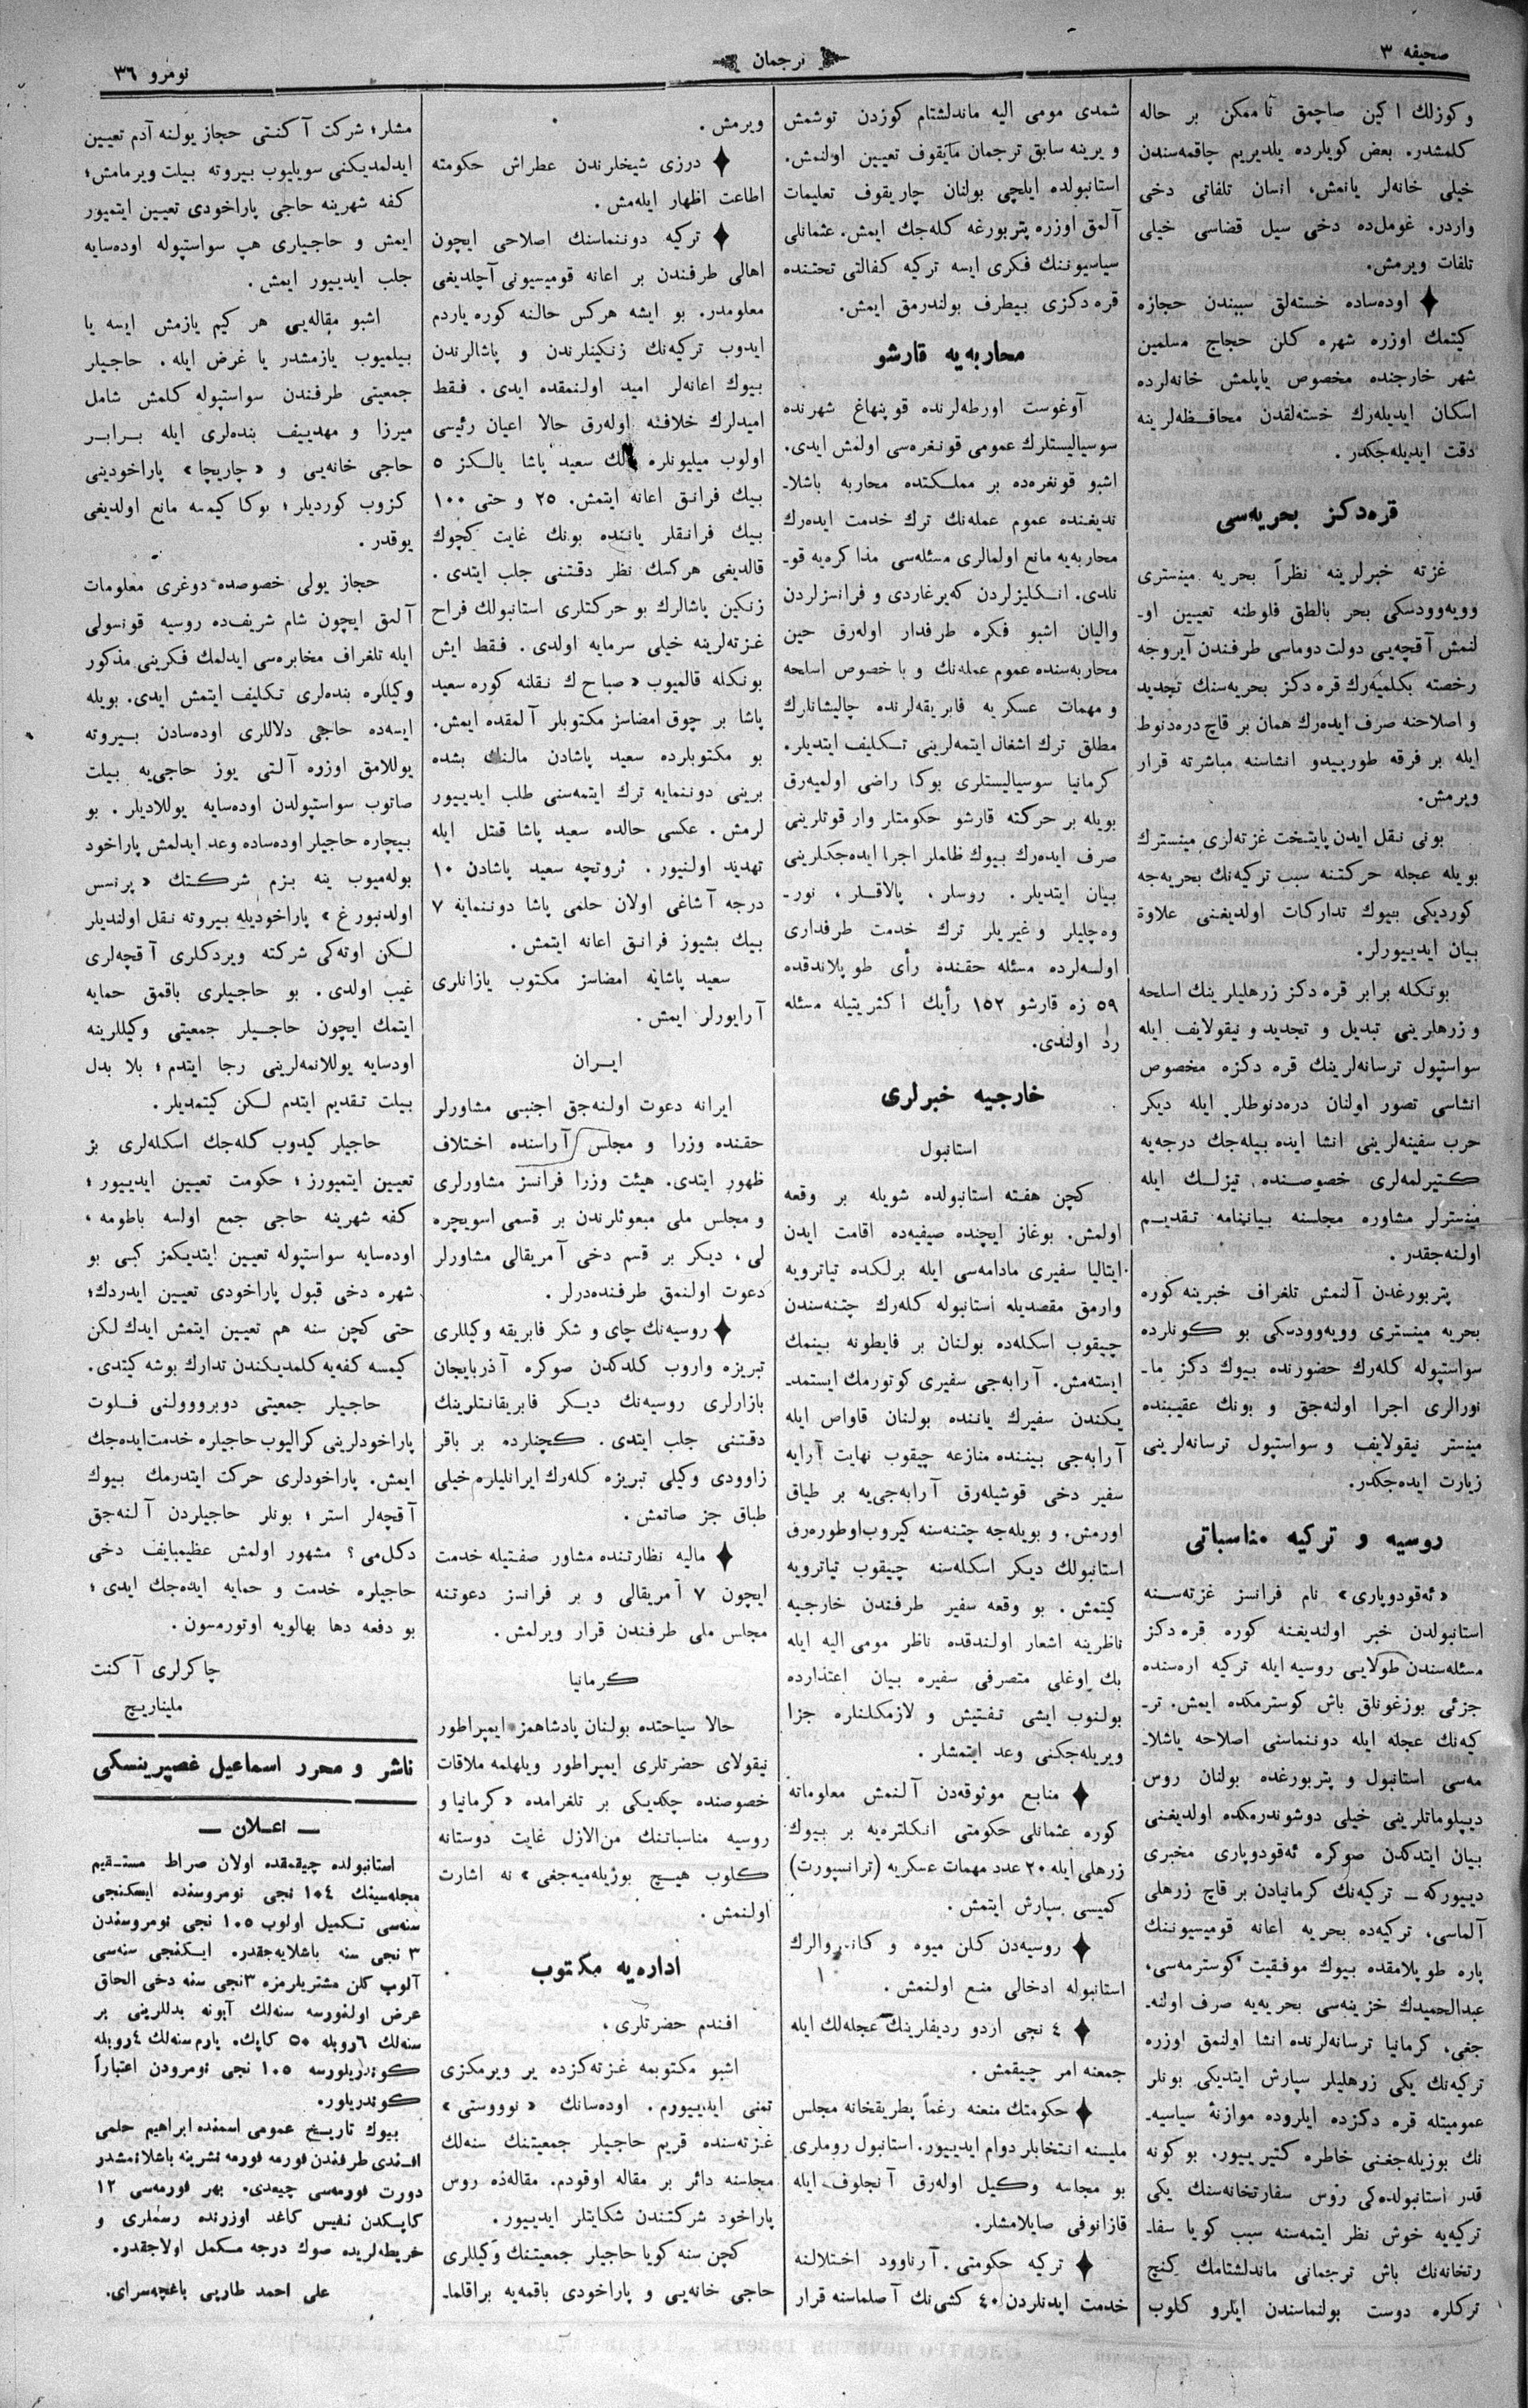 صحیفه ٣
ترجمان
نومرو ٣٦
و کوزلك اکین صاچمق ناممکن بر حاله
کلمشدر. بعض کویلرده یلدیریم چاقمه‌سندن
خیلی خانه‌لر یانمش، انسان تلفاتی دخی
واردر. غومل‌ده دخی سیل قضاسی خیلی
تلفات ویرمش.
اوده‌ساده خسته‌لق سببندن حجازه
کیتمك اوزره شهره کلن حجاج مسلمین
شهر خارجنده مخصوص یاپلمش خانه‌لرده
اسکان ایدیله‌رك خسته‌لقدن محافظه‌لرینه
دقت ایدیله‌جکدر.
قره‌دکز بحریه‌سی
غزته خبرلرینه نظراً بحریه مینستری
وویه‌وودسکی بحر بالطق فلوطنه تعیین او-
لنمش آقچه‌یی دولت دوماسی طرفندن آیروجه
رخصته بکلمیه‌رك قره دکز بحریه‌سنك تجدید
و اصلاحنه صرف ایده‌رك همان بر قاچ دره‌دنوط
ایله بر فرقه طورپیدو انشاسنه مباشرته قرار
ویرمش.
بونی نقل ایدن پایتخت غزته‌لری مینسترك
بویله عجله حرکتنه سبب ترکیه‌نك بحریه‌جه
کوردیکی بیوك تدارکات اولدیغنی علاوة
بیان ایدییورلر.
بونکله برابر قره دکز زرهلیلرینك اسلحه
و زرهلرینی تبدیل و تجدید و نیقولایف ایله
سواستپول ترسانه‌لرینك قره دکزه مخصوص
انشاسی تصور اولنان دره‌دنوطلر ایله دیکر
حرب سفینه‌لرینی انشا ایده بیله‌جك درجه‌یه
کتیرلمه‌لری خصوصنده تیزلك ایله
مینسترلر مشاوره مجلسنه بیاننامه تقدیم
اولنه‌جقدر.
پتربورغدن آلنمش تلغراف خبرینه کوره
بحریه مینستری وویه‌وودسکی بو کونلرده
سواستپوله کله‌رك حضورنده بیوك دکز ما-
نورالری اجرا اولنه‌جق و بونك عقیبنده
مینستر نیقولایف و سواستپول ترسانه‌لرینی
زیارت ایده‌جکدر.
روسیه و ترکیه مناسباتی
«ئه‌قودوپاری» نام فرانسز غزته‌سنه
استانبولدن خبر اولندیغنه کوره قره دکز
مسئله‌سندن طولایی روسیه ایله ترکیه اره‌سنده
جزئی بوزغونلق باش کوسترمکده ایمش. تر-
کیه‌نك عجله ایله دوننماسنی اصلاحه باشلا-
مه‌سی استانبول و پتربورغده بولنان روس
دیپلوماتلرینی خیلی دوشوندرمکده اولدیغنی
بیان ایتدکدن صوکره ئه‌قودوپاری مخبری
دییورکه — ترکیه‌نك کرمانیادن بر قاچ زرهلی
آلماسی، ترکیه‌ده بحریه اعانه قومیسیوننك
پاره طوپلامقده بیوك موفقیت کوسترمه‌سی،
عبدالحمیدك خزینه‌سی بحریه‌یه صرف اولنه-
جغی، کرمانیا ترسانه‌لرنده انشا اولنمق اوزره
ترکیه‌نك یکی زرهلیلر سپارش ایتدیکی بونلر
عمومیتله قره دکزده ایلروده موازنهٔ سیاسیه-
نك بوزیله‌جغنی خاطره کتیرییور. بو کونه
قدر استانبولده‌کی روس سفارتخانه‌سنك یکی
ترکیه‌یه خوش نظر ایتمه‌سنه سبب کویا سفا-
رتخانه‌نك باش ترجمانی ماندلشتامك کنج
ترکلره دوست بولنماسندن ایلرو کلوب
شمدی مومی الیه ماندلشتام کوزدن توشمش
و یرینه سابق ترجمان مایقوف تعیین اولنمش.
استانبولده ایلچی بولنان چاریقوف تعلیمات
آلمق اوزره پتربورغه کله‌جك ایمش. عثمانلی
سیاسیوننك فکری ایسه ترکیه کفالتی تحتنده
قره دکزی بیطرف بولندرمق ایمش.
محاربه‌یه قارشو
آوغوست اورطه‌لرنده قوپنهاغ شهرنده
سوسیالیستلرك عمومی قونغره‌سی اولمش ایدی.
اشبو قونغره‌ده بر مملکتده محاربه باشلا-
ندیغنده عموم عمله‌نك ترك خدمت ایده‌رك
محاربه‌یه مانع اولمالری مسئله‌سی مذاکره‌یه قو-
نلدی. انکلیزلردن که‌یرغاردی و فرانسزلردن
والیان اشبو فکره طرفدار اوله‌رق حین
محاربه‌سنده عموم عمله‌نك و با خصوص اسلحه
و مهمات عسکریه فابریقه‌لرنده چالیشانلرك
مطلق ترك اشغال ایتمه‌لرینی تکلیف ایتدیلر.
کرمانیا سوسیالیستلری بوکا راضی اولمیه‌رق
بویله بر حرکته قارشو حکومتلر وار قوتلرینی
صرف ایده‌رك بیوك ظلملر اجرا ایده‌جکلرینی
بیان ایتدیلر. روسلر، پالاقلر، نور-
وه‌چلیلر و غیریلر ترك خدمت طرفداری
اولسه‌لرده مسئله حقنده رأی طوپلاندقده
٥٩ زه قارشو ١٥٢ رأیك اکثریتیله مسئله
رد اولندی.
خارجیه خبرلری
استانبول
کچن هفته استانبولده شویله بر وقعه
اولمش. بوغاز ایچنده صیفیه‌ده اقامت ایدن
ایتالیا سفیری مادامه‌سی ایله برلکده تیاترویه
وارمق مقصدیله استانبوله کله‌رك چتنه‌سندن
چیقوب اسکله‌ده بولنان بر فایطونه بینمك
ایسته‌مش. آرابه‌جی سفیری کوتورمك ایستمد-
یکندن سفیرك یاننده بولنان قاواص ایله
آرابه‌جی بیننده منازعه چیقوب نهایت آرایه
سفیر دخی قوشیله‌رق آرابه‌جی‌یه بر طیاق
اورمش. و بویله‌جه چتنه‌سنه کیروب اوطوره‌رق
استانبولك دیکر اسکله‌سنه چیقوب تیاترویه
کیتمش. بو وقعه سفیر طرفندن خارجیه
ناظرینه اشعار اولندقده ناظر مومی الیه ایله
بك اوغلی متصرفی سفیره بیان اعتذارده
بولنوب ایشی تفتیش و لازمکلنلره جزا
ویریله‌جکنی وعد ایتمشلر.
منابع موثوقه‌دن آلنمش معلوماته
کوره عثمانلی حکومتی انکلتره‌یه بر بیوك
زرهلی ایله ٢٠ عدد مهمات عسکریه (ترانسپورت)
کمیسی سپارش ایتمش.
روسیه‌دن کلن میوه و کانسروالرك
استانبوله ادخالی منع اولنمش.
٤ نجی اردو ردیفلرینك عجله‌لك ایله
جمعنه امر چیقمش.
حکومتك منعنه رغماً پطریقخانه مجلس
ملیسنه انتخابلر دوام ایدییور. استانبول روملری
بو مجلسه وکیل اوله‌رق آنجلوف ایله
قازانوفی صایلامشلر.
ترکیه حکومتی آرناوود اختلالنه
خدمت ایدنلردن ٤٠ کشی‌نك آصلماسنه قرار
ویرمش.
درزی شیخلرندن عطراش حکومته
اطاعت اظهار ایله‌مش.
ترکیه دوننماسنك اصلاحی ایچون
اهالی طرفندن بر اعانه قومیسیونی آچلدیغی
معلومدر. بو ایشه هرکس حالنه کوره یاردم
ایدوب ترکیه‌نك زنکینلرندن و پاشالرندن
بیوك اعانه‌لر امید اولنمقده ایدی. فقط
امیدلرك خلافنه اوله‌رق حالا اعیان رئیسی
اولوب میلیونلره مالك سعید پاشا یالکز ٥
بیك فرانق اعانه ایتمش. ٢٥ و حتی ١٠٠
بیك فرانقلر یاننده بونك غایت کچوك
قالدیغی هرکسك نظر دقتنی جلب ایتدی.
زنکین پاشالرك بو حرکتلری استانبولك فراح
غزته‌لرینه خیلی سرمایه اولدی. فقط ایش
بونکله قالمیوب «صباح»ك نقلنه کوره سعید
پاشا بر چوق امضاسز مکتوبلر آلمقده ایمش.
بو مکتوبلرده سعید پاشادن مالنك بشده
برینی دوننمایه ترك ایتمه‌سنی طلب ایدییور
لرمش. عکسی حالده سعید پاشا قتل ایله
تهدید اولنیور. ثروتچه سعید پاشادن ١٠
درجه آشاغی اولان حلمی پاشا دوننمایه ٧
بیك بشیوز فرانق اعانه ایتمش.
سعید پاشایه امضاسز مکتوب یازانلری
آرایورلر ایمش.
ایران
ایرانه دعوت اولنه‌جق اجنبی مشاورلر
حقنده وزرا و مجلس آراسنده اختلاف
ظهور ایتدی. هیئت وزرا فرانسز مشاورلری
و مجلس ملی مبعوثلرندن بر قسمی اسویچره
لی، دیکر بر قسم دخی آمریقالی مشاورلر
دعوت اولنمق طرفنده‌درلر.
روسیه‌نك چای و شکر فابریقه وکیللری
تبریزه واروب کلدکدن صوکره آذربایجان
بازارلری روسیه‌نك دیکر فابریقانتلرینك
دقتنی جلب ایتدی. کچنلرده بر باقر
زاوودی وکیلی تبریزه کله‌رك ایرانلیلره خیلی
طباق جز صاتمش.
مالیه نظارتنده مشاور صفتیله خدمت
ایچون ٧ آمریقالی و بر فرانسز دعوتنه
مجلس ملی طرفندن قرار ویرلمش.
کرمانیا
حالا سیاحتده بولنان پادشاهمز ایمپراطور
نیقولای حضرتلری ایمپراطور ویلهلمه ملاقات
خصوصنده چکدیکی بر تلغرامده «کرمانیا و
روسیه مناسباتنك من‌الازل غایت دوستانه
کلوب هیچ بوزیله‌میه‌جغی» نه اشارت
اولنمش.
اداره‌یه مکتوب
افندم حضرتلری،
اشبو مکتوبمه غزته‌کزده یر ویرمکزی
تمنی ایدییورم. اوده‌سانك «نوووستی»
غزته‌سنده قریم حاجیلر جمعیتنك سنه‌لك
مجلسنه دائر بر مقاله اوقودم. مقاله‌ده روس
پاراخود شرکتندن شکایتلر ایدییور.
کچن سنه کویا حاجیلر جمعیتنك وکیللری
حاجی خانه‌یی و پاراخودی باقمه‌یه براقلما-
مشلر؛ شرکت آکنتی حجاز یولنه آدم تعیین
ایدلمدیکنی سویلیوب بیروته بیلت ویرمامش؛
کفه شهرینه حاجی پاراخودی تعیین ایتمیور
ایمش و حاجیلری هپ سواستپوله اوده‌سایه
جلب ایدییور ایمش.
اشبو مقاله‌یی هر کیم یازمش ایسه یا
بیلمیوب یازمشدر یا غرض ایله. حاجیلر
جمعیتی طرفندن سواستپوله کلمش شامل
میرزا و مهدییف بنده‌لری ایله برابر
حاجی خانه‌یی و «چاریچا» پاراخودینی
کزوب کوردیلر؛ بوکا کیمسه مانع اولدیغی
یوقدر.
حجاز یولی خصوصده دوغری معلومات
آلمق ایچون شام شریف‌ده روسیه قونسولی
ایله تلغراف مخابره‌سی ایدلمك فکرینی مذکور
وکیللره بنده‌لری تکلیف ایتمش ایدی. بویله
ایسه‌ده حاجی دلاللری اوده‌سادن بیروته
یوللامق اوزره آلتی یوز حاجی‌یه بیلت
صاتوب سواستپولدن اوده‌سایه یوللادیلر. بو
بیچاره حاجیلر اوده‌ساده وعد ایدلمش پاراخود
بوله‌میوب ینه بزم شرکتك «پرنسس
اولدنبورغ» پاراخودیله بیروته نقل اولندیلر
لکن اوته‌کی شرکته ویردکلری آقچه‌لری
غیب اولدی. بو حاجیلری باقمق حمایه
ایتمك ایچون حاجیلر جمعیتی وکیللرینه
اودسایه یوللانمه‌لرینی رجا ایتدم؛ بلا بدل
بیلت تقدیم ایتدم لکن کیتمدیلر.
حاجیلر کیدوب کله‌جك اسکله‌لری بز
تعیین ایتمیورز؛ حکومت تعیین ایدییور؛
کفه شهرینه حاجی جمع اولسه باطومه،
اوده‌سایه سواستپوله تعیین ایتدیکمز کبی بو
شهره دخی قبول پاراخودی تعیین ایدردك؛
حتی کچن سنه هم تعیین ایتمش ایدك لکن
کیمسه کفه‌یه کلمدیکندن تدارك بوشه کیتدی.
حاجیلر جمعیتی دوبرووولنی فلوت
پاراخودلرینی کرالیوب حاجیلره خدمت ایده‌جك
ایمش. پاراخودلری حرکت ایتدرمك بیوك
آقچه‌لر استر؛ بونلر حاجیلردن آلنه‌جق
دکل‌می؟ مشهور اولمش عظیمبایف دخی
حاجیلره خدمت و حمایه ایده‌جك ایدی؛
بو دفعه دها بهالویه اوتورمسون.
چاکرلری آکنت
ملیناریچ
ناشر و محرر اسماعیل غصپرینسکی
— اعلان —
استانبولده چیقمقده اولان صراط مستقیم
مجله‌سینك ١٠٤ نجی نومروسنده ایکنجی
سنه‌سی تکمیل اولوب ١٠٥ نجی نومروسندن
٣ نجی سنه باشلایه‌جقدر. ایکنجی سنه‌سی
آلوب کلن مشتریلرمزه ٣نجی سنه دخی الحاق
عرض اولنورسه سنه‌لك آبونه بدللرینی بر
سنه‌لك ٦ روبله ٥٠ کاپك. یارم سنه‌لك ٤ روبله
کوندریلورسه ١٠٥ نجی نومرودن اعتباراً
کوندریلور.
بیوك تاریخ عمومی اسمنده ابراهیم حلمی
افندی طرفندن فورمه فورمه نشرینه باشلانمشدر
دورت فورمه‌سی چیقدی. بهر فورمه‌سی ١٢
کاپکدن نفیس کاغد اوزرنده رسملری و
خریطه‌لریده صوك درجه مکمل اولاجقدر.
علی احمد طارپی باغچه‌سرای.